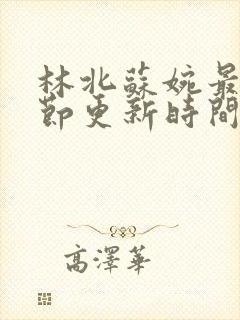 林北蘇婉最
節更新時間
高澤華